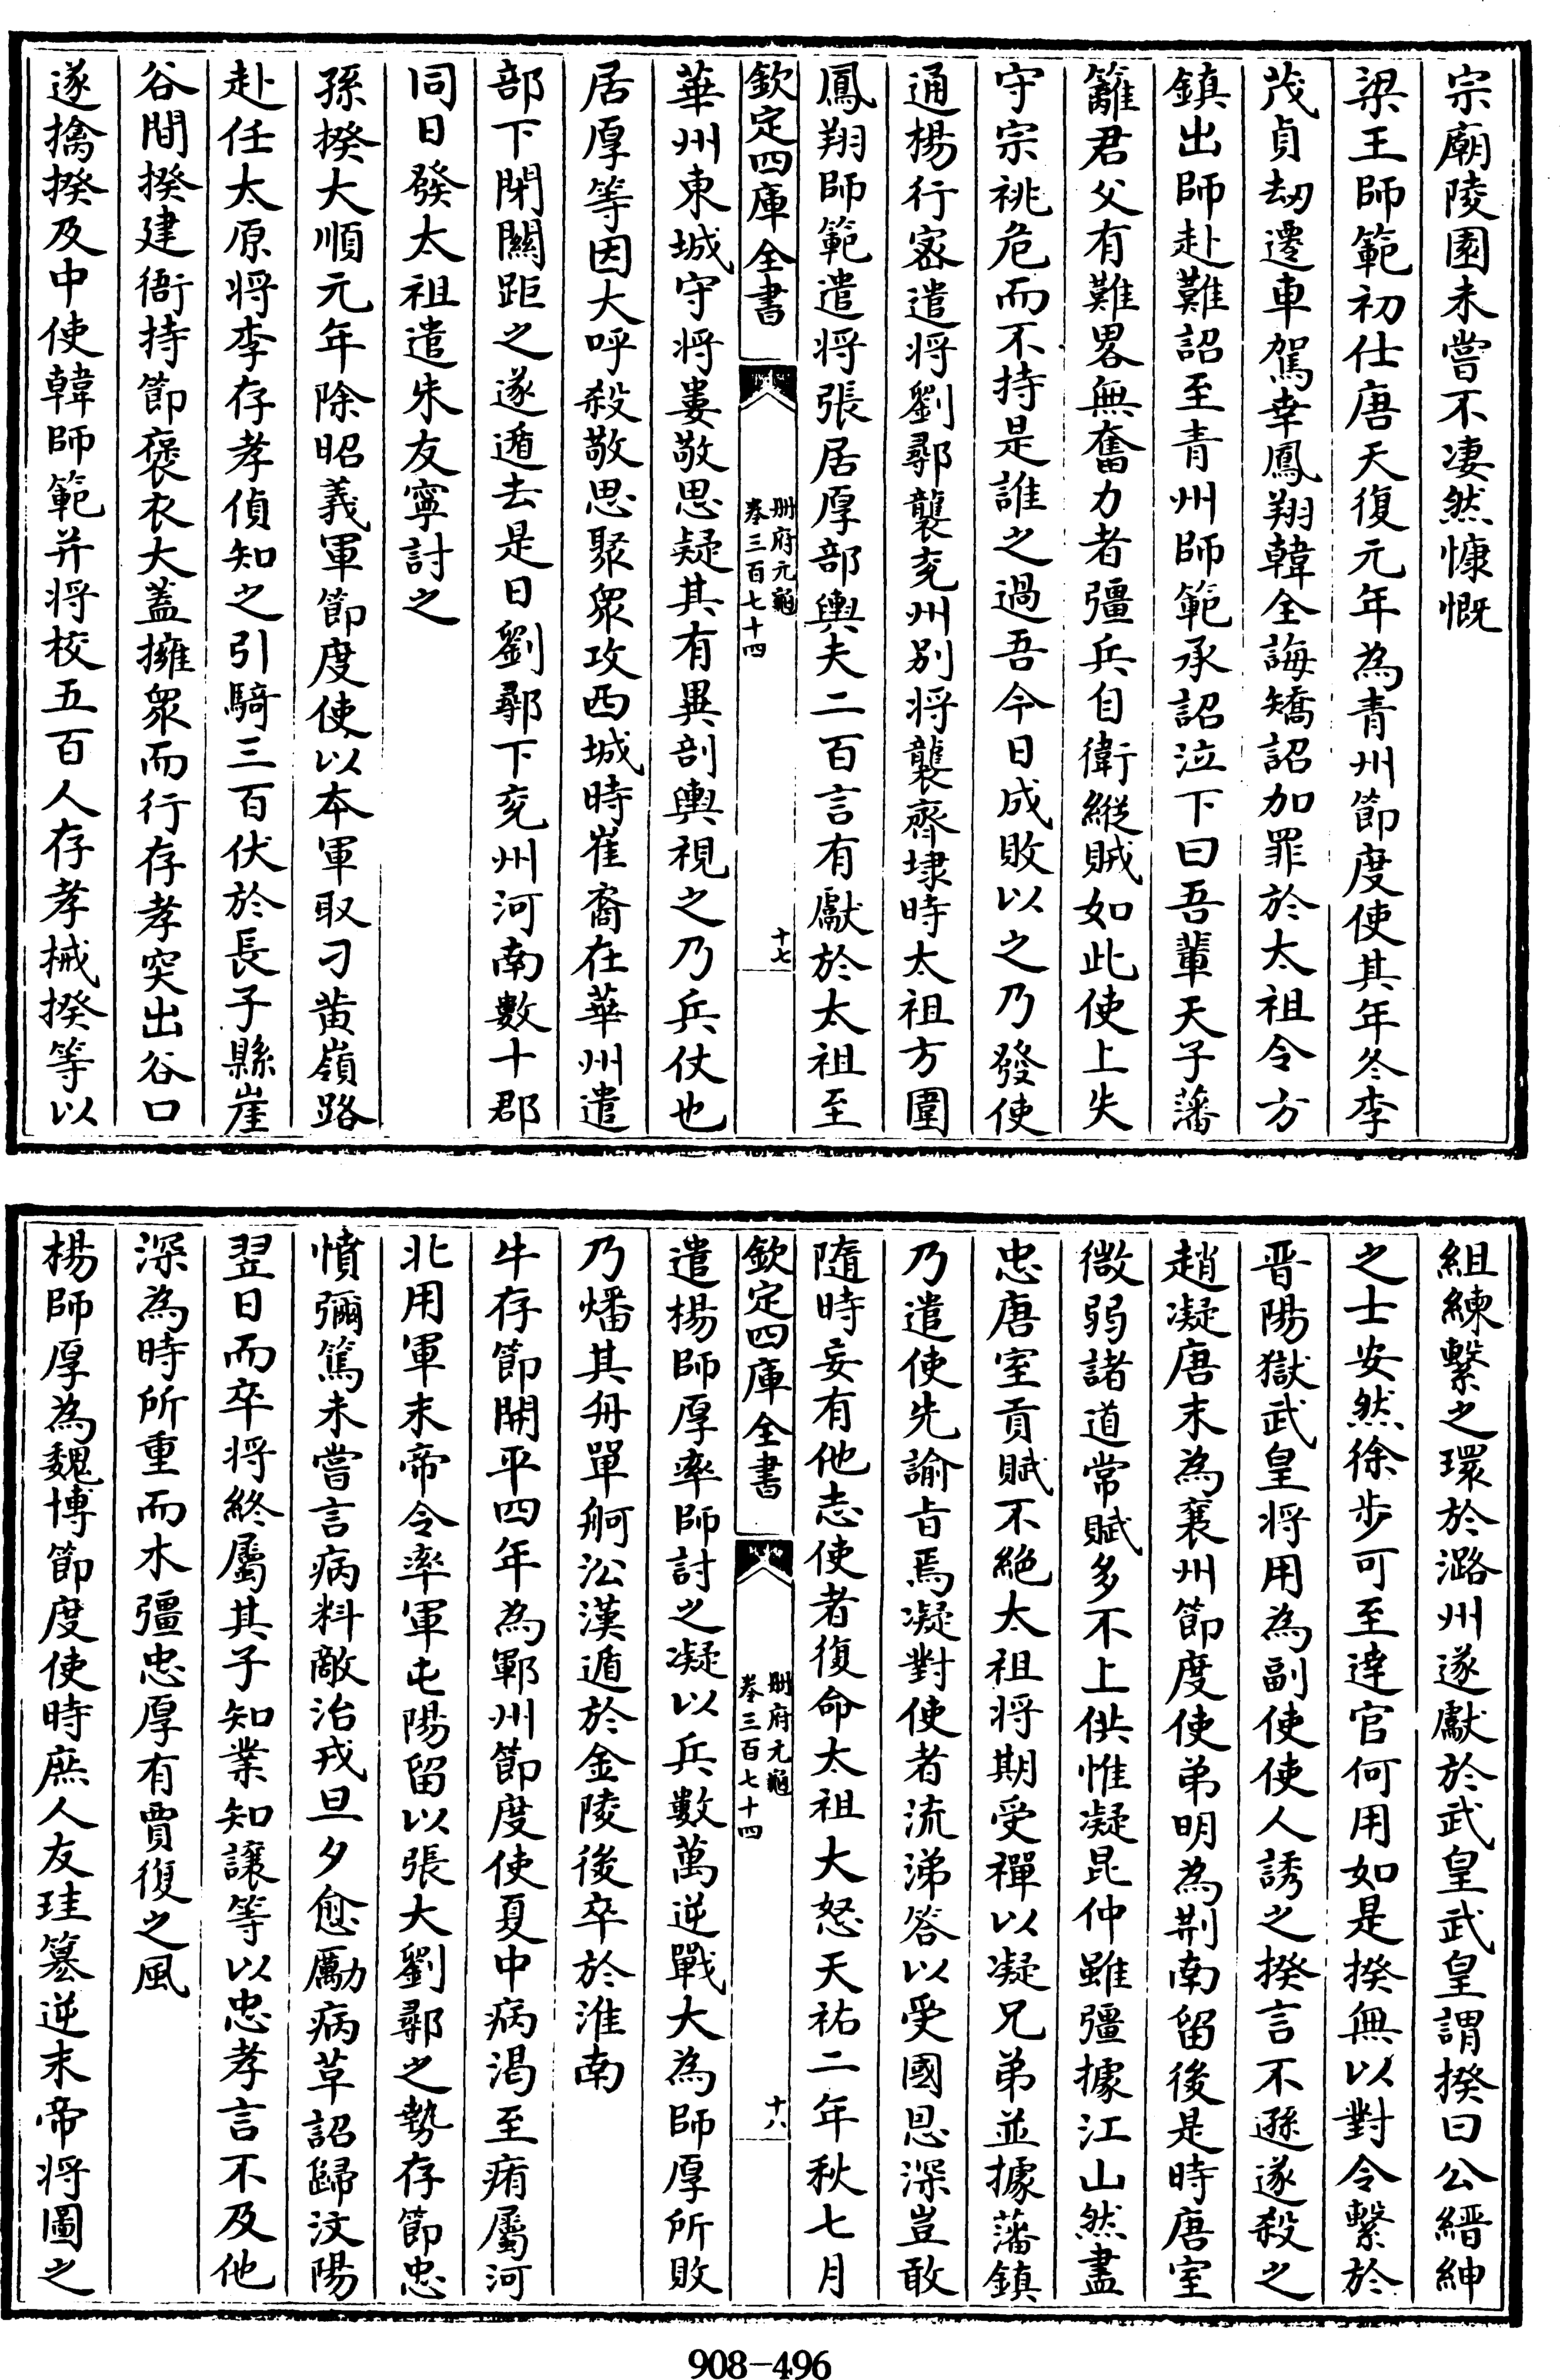 宗廟陵園未嘗不淒然慷慨
梁王師範初仕唐天復元年為青州節度使其年冬李
茂貞劫遷車駕幸鳳翔韓全誨矯詔加罪於太祖令方
鎮出師赴難詔至青州師範承詔泣下曰吾輩天子藩
籬君父有難畧無奮力者彊兵自衛縱賊如此使上失
守宗祧危而不持是誰之過吾今日成敗以之乃發使
通楊行密遣將劉鄩襲兖州別將襲齊埭時太祖方圍
鳳翔師範遣將張居厚部輿夫二百言有獻於太祖至
欽定四庫全書
冊府元龜
卷三百七十四
十七
華州東城守將婁敬思疑其有異剖輿視之乃兵仗也
居厚等因大呼殺敬思聚眾攻西城時崔裔在華州遣
部下閉關距之遂遁去是日劉鄩下兖州河南數十郡
同日發太祖遣朱友寧討之
孫揆大順元年除昭義軍節度使以本軍取刁黄嶺路
赴任太原將李存孝偵知之引騎三百伏於長子縣崖
谷間揆建衙持節褒衣大蓋擁眾而行存孝突出谷口
遂擒揆及中使韓師範并將校五百人存孝械揆等以
組練繫之環於潞州遂獻於武皇武皇謂揆曰公縉紳
之士安然徐步可至達官何用如是揆無以對令繫於
晋陽獄武皇將用為副使使人誘之揆言不遜遂殺之
趙凝唐末為襄州節度使弟明為荆南留後是時唐室
微弱諸道常賦多不上供惟凝昆仲雖彊據江山然盡
忠唐室貢賦不絶太祖將期受禪以凝兄弟並據藩鎮
乃遣使先諭旨焉凝對使者流涕答以受國恩深豈敢
隨時妄有他志使者復命太祖大怒天祐二年秋七月
欽定四庫全書
冊府元龜
卷三百七十四
十八
遣楊師厚率師討之凝以兵數萬逆戰大為師厚所敗
乃燔其舟單舸沿漢遁於金陵後卒於淮南
牛存節開平四年為鄆州節度使夏中病渴至痏屬河
北用軍末帝令率軍屯陽留以張大劉鄩之勢存節忠
憤彌篤未嘗言病料敵治戎旦夕愈勵病草詔歸汶陽
翌日而卒將終屬其子知業知讓等以忠孝言不及他
深為時所重而木彊忠厚有賈復之風
楊師厚為魏博節度使時庶人友珪簒逆末帝將圖之
908-496